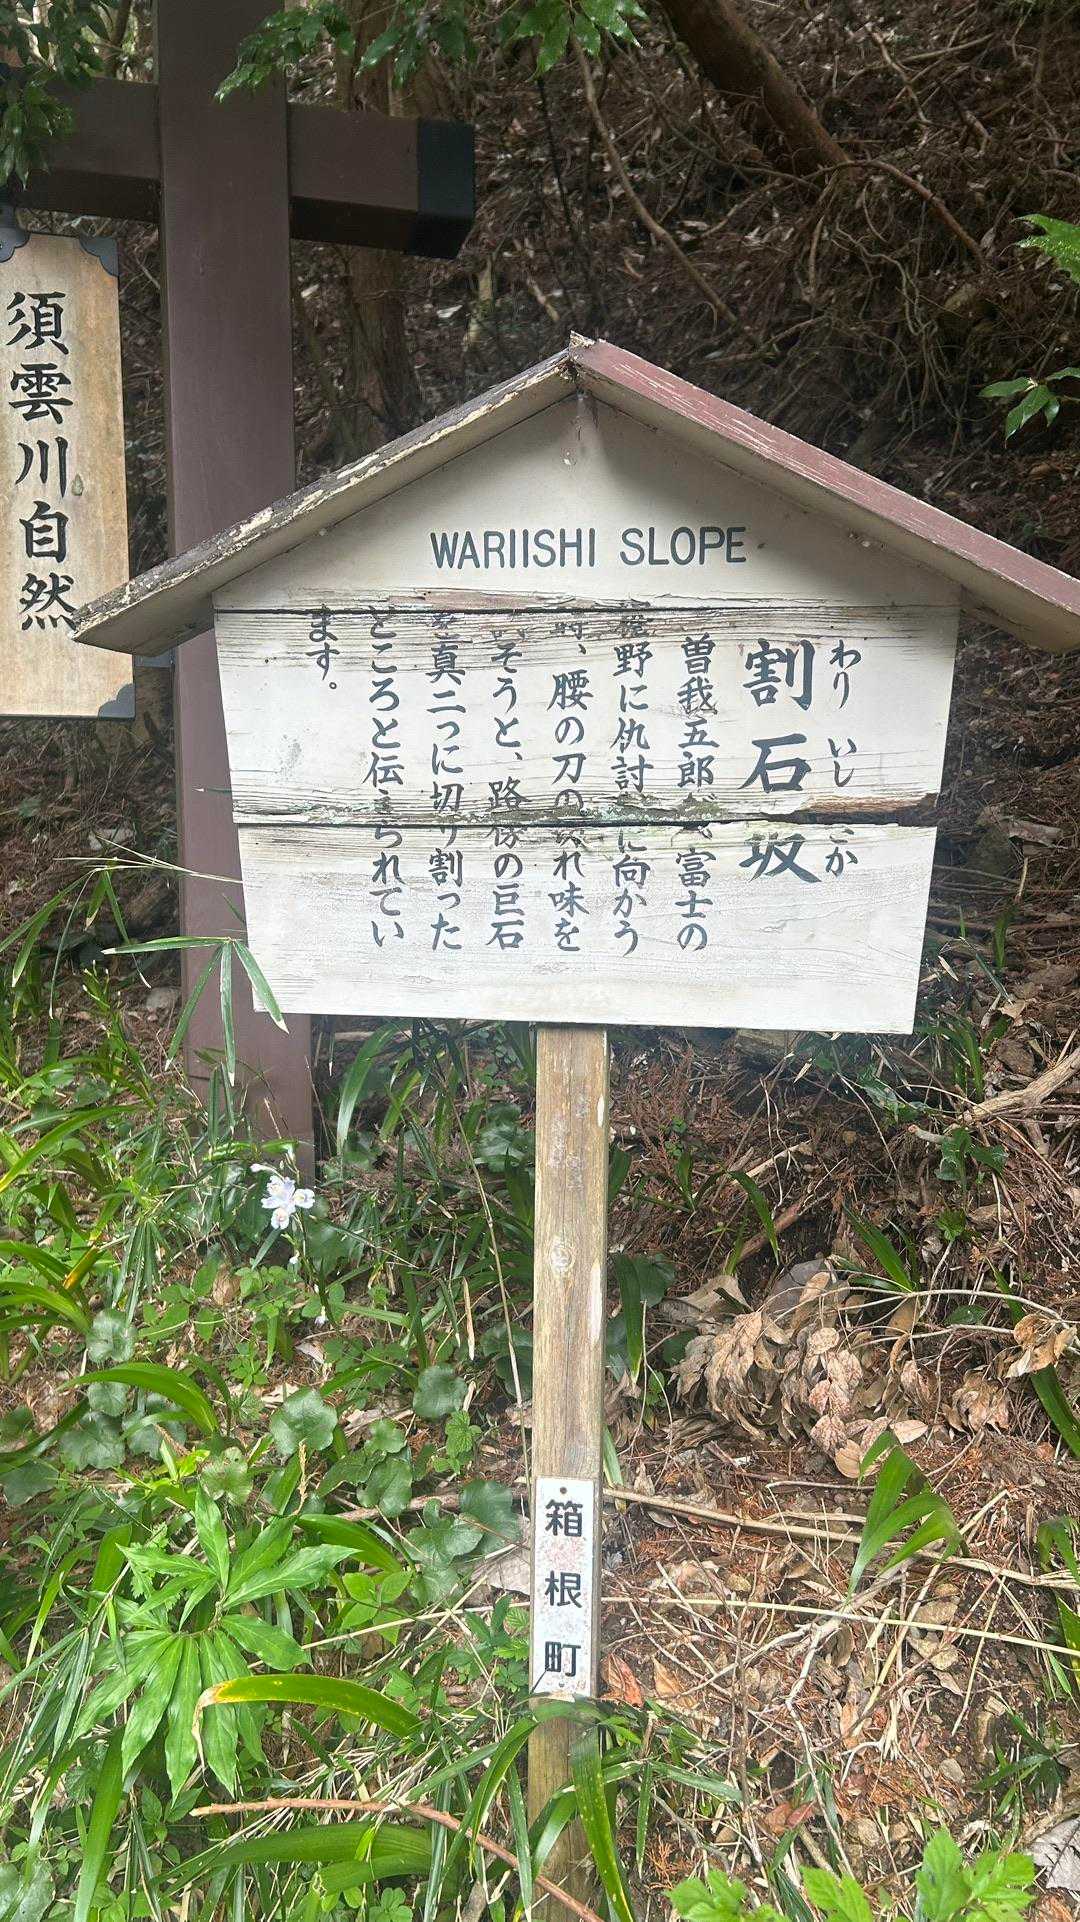 須雲川自然
WARIISHI SLOPE
わり いし ざか
割石坂
曽我五郎が、富士の
裾野に仇討ちに向かう
時、腰の刀の切れ味を
試そうと、路傍の巨石
を真二つに切り割った
ところと伝えられてい
ます。
箱根町